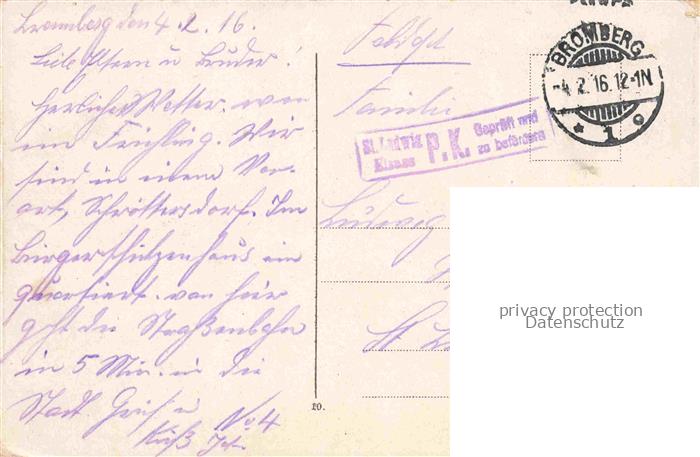 Bromberg den 4.2.16.
Liebe Eltern u Bruder!
Herliches Wetter. wan
ein Früchling. Wir
sind in einem Vor-
ort, Schröttersdorf. Im
Bürgerschützenhaus ein
quartiert. von hier
geht die Straßenbahn
in 5 Min. in die
Stadt. Gruß u
Kuß
No 4
Feldpost
Familie
Ludwig
St. L
BROMBERG
-4.2.16.12-1N
* 1 c
St. Ludwig
Elsass
P.K.
Geprüft und
zu befördern
19.
privacy protection
Datenschutz